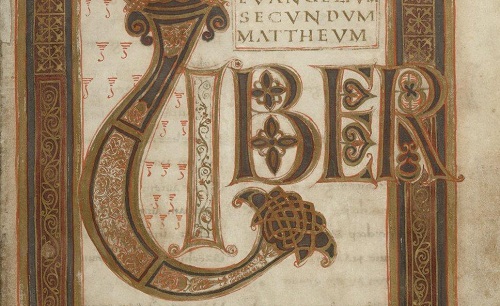 EVANGELIUM
SECUNDUM
MATTHEUM
LIBER